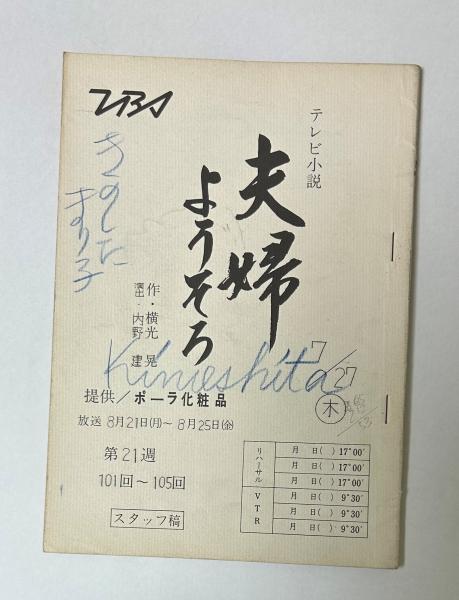 TBS
テレビ小説
夫婦
ようそろ
作・横光 晃
演出・内野 建
きのした
まり子
Kinoshita
7/27
木
提供/ポーラ化粧品
放送 8月21日(月)～8月25日(金)
第21週
101回～105回
スタッフ稿
リハーサル
月 日( ) 17°00′
月 日( ) 17°00′
月 日( ) 17°00′
VTR
月 日( ) 9°30′
月 日( ) 9°30′
月 日( ) 9°30′